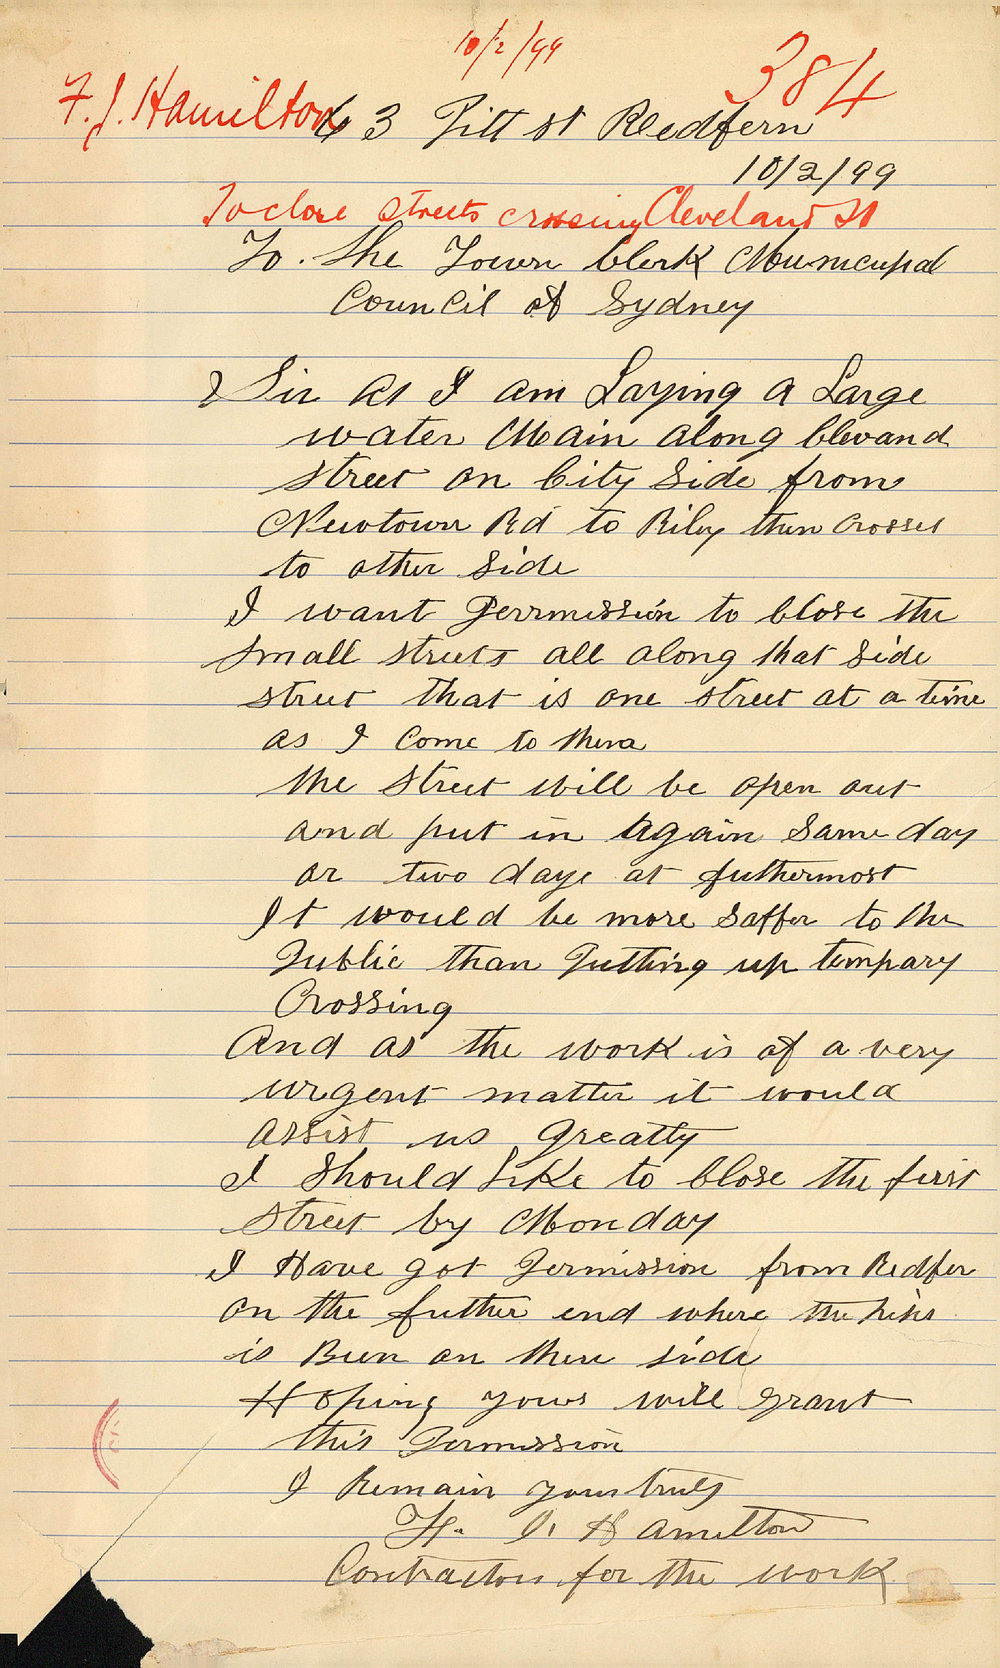 10/2/99
384
F. J. Hamilton
63 Pitt st Reedfern
10/2/99
To close streets crossing Cleveland St
To. The Town Clerk Municupal
Council of Sydney
Sir as I am Laying a Large
water Main along Clevand
street on City Side from
Newtown Rd to Riley then Crosses
to other Side
I want Perrmission to Close the
small streets all along that Side
street that is one street at a time
as I Come to them
the street will be open out
and put in again Same day
or two days at futhermost
It would be more Saffer to the
Public than Putting up tempary
Crossing
And as the work is of a very
urgent matter it would
assist us greatly
I Should Like to Close the first
street by Monday
I Have got Permission from Redfer
on the futher end where the
is Been on there side
Hoping yours will grant
this Permission
I Remain yours truly
F. J. Hamilton
Contractors for the work